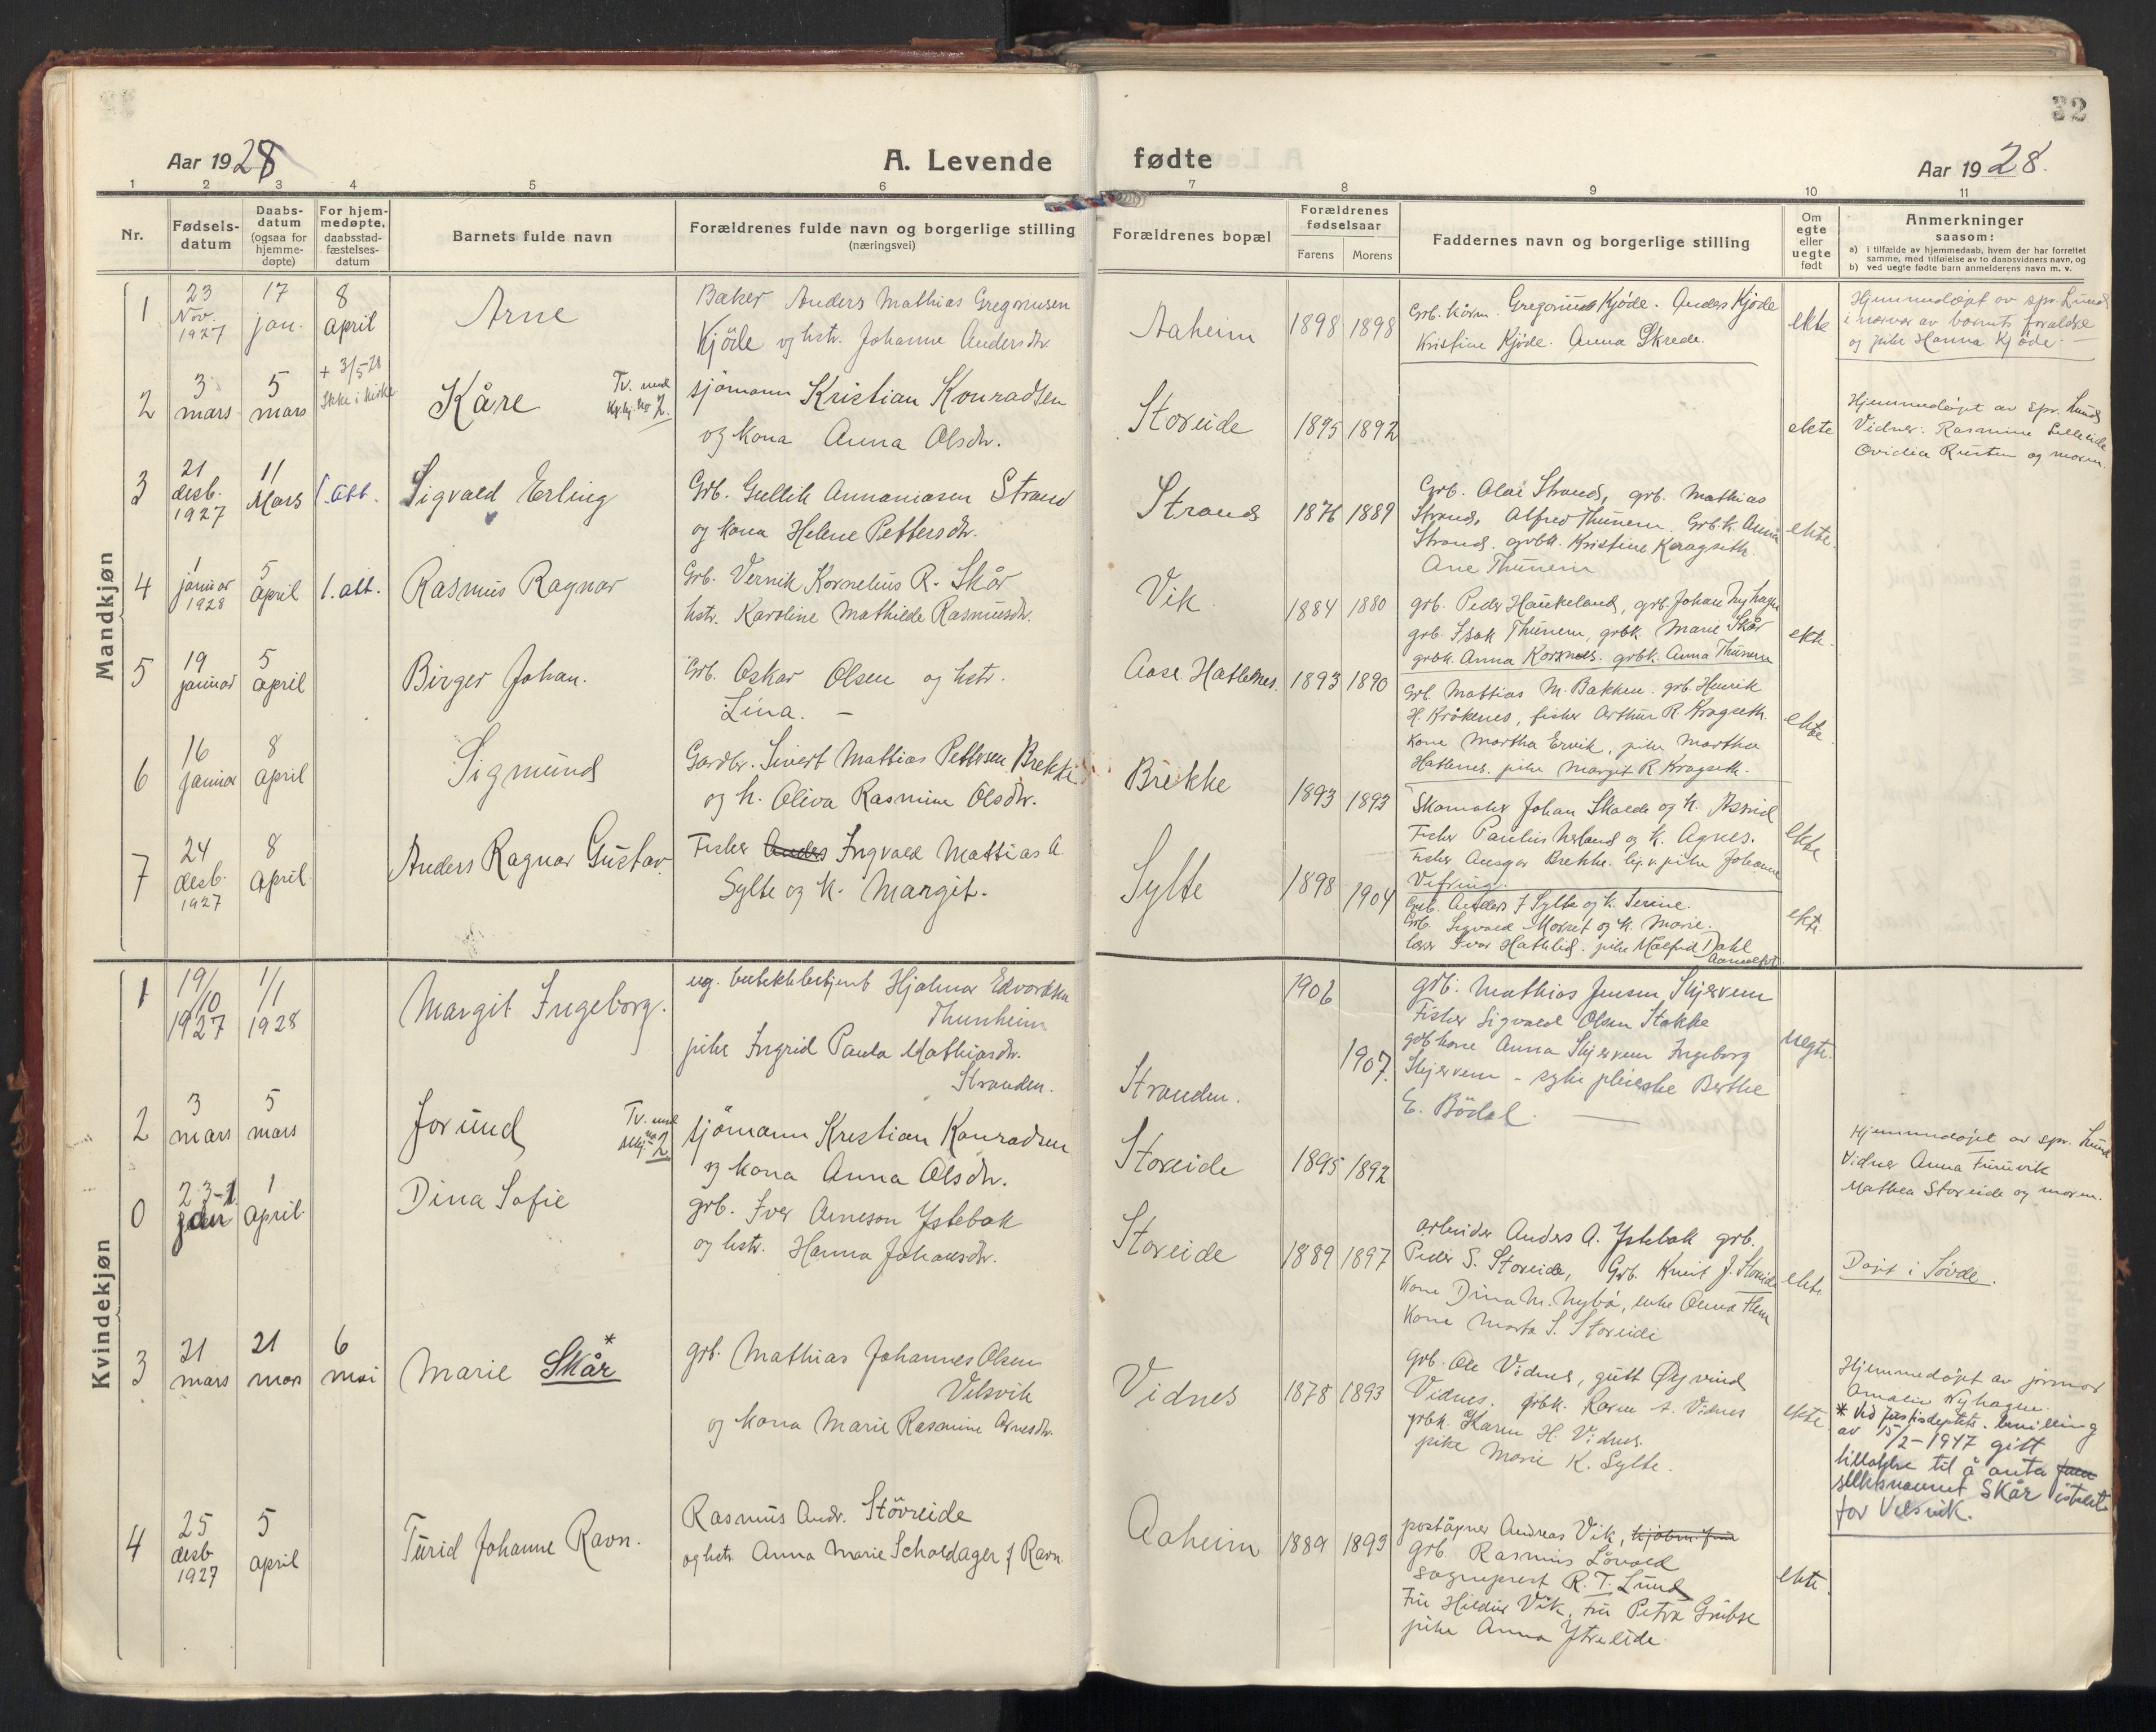 32
Aar 1928
A. Levende fødte
Aar 1928.
1 2 3 4 5 6 7 8 9 10 11
Nr.
Fødsels-
datum
Daabs-
datum
(ogsaa for
hjemme-
døpte)
For hjem-
medøpte,
daabsstad-
fæstelses-
datum
Barnets fulde navn
Forældrenes fulde navn og borgerlige stilling
(næringsvei)
Forældrenes bopæl
Forældrenes
fødselsaar
Farens Morens
Faddernes navn og borgerlige stilling
Om
egte
eller
uegte
født
Anmerkninger
saasom:
a) i tilfælde av hjemmedaab, hvem der har forrettet
samme, med tilføielse av to daabsvidners navn, og
b) ved uegte fødte barn anmelderens navn m. v.
Mandkjøn
1
23
Nov.
1927
17
jan.
8
april
Arne
Baker Anders Mathias Gregoriusen
Kjöde og hstr. Johanne Andersdtr.
Aaheim
1898 1898
Gregorius Kjöde. Anders Kjöde
Kristine Kjöde. Anna Skrede.
ekte
Hjemmedöpt av spr. Lund
i nærvær av barnets foreldre
og pike Hanna Kjöde.
2
3
mars
5
mars
+ 3/5-28
Ikke i kirke
Kåre
Tv. med
Kv.kj. no 2.
sjömann Kristian Konradsen
og kona Anna Olsdtr.
Storeide
1895 1892
ekte
Hjemmedöpt av spr. Lund
Vidner. Rasmine Lilleeide
Ovidia Rusten og moren.
3
21
desb.
1927
11
Mars
1. att.
Sigvald Erling
Grb. Gullik Annaniasen Strand
og kona Helene Pettersdtr.
Strand
1876 1889
Grb. Olai Strand, grb. Mathias
Strand, Alfred Thunem. Grb.k. Anna
Strand. grbk. Kristine Kragseth
Ane Thunem
ekte.
4
1
januar
1928
5
april
1. att.
Rasmus Ragnar
Grb. Vernik Kornelius R. Skår
hstr. Karoline Mathilde Rasmusdtr.
Vik
1884 1880
grb. Peder Haukeland, grb. Johan Nyhagen
grb. Isak Thunem, grbk. Marie Skår
grbk. Anna Korsnes. grbk. Anna Thunem
ekte.
5
19
januar
5
april
Birger Johan.
Grb. Oskar Olsen og hstr.
Lina. –
Aase. Hatlenes.
1893 1890
Grb. Mattias M. Bakken. grb. Henrik
H. Kråkenes, fisker Arthur R. Kragseth.
kone Martha Ervik, pike Martha
Hatlenes. pike Margit R. Kragseth.
ekte
6
16
januar
8
april
Sigmund
Gardbr. Sivert Mattias Pettersen Brekke
og k. Oliva Rasmine Olsdtr.
Brekke
1893 1893
Skomaker Johan Skaade og k. Astrid
Fisker Paulus og k. Agnes.
Fisker Ansgar Brekke. pike Johanne
Vefring.
ekte
7
24
desb.
1927
8
april
Anders Ragnar Gustav.
Fisker Anders Ingvald Mattias A.
Sylte og k. Margit.
Sylte
1898 1904
Grb. Anders J Sylte og k. Serine.
Grb. Sigvald Morset og k. Marie.
lærer Ivar Hatlelid. pike Målfrid Dahl
ekte.
Kvindekjøn
1
19/
10
1927
1/1
1928
Margit Ingeborg.
ug. butikkbetjent Hjalmar Edvardsen
Thunheim
pike Ingrid Paula Mathiasdtr.
Stranden.
Stranden.
1906
1907.
grb. Mathias Jensen Skjervem
Fisker Sigvald Olsen Stokke
grbkone Anna Skjervem Ingeborg
Skjervem – sykepleierske Berthe
E. Bödal.
uegte.
2
3
mars
5
mars
Jorund
Tv. med
no 2
sjömann Kristian Konradsen
og kona Anna Olsdtr.
Storeide
1895 1892
Hjemmedöpt av spr. Lund
Vidner Anna Furuvik
Mathea Storeide og moren.
0
jan
1
april
Dina Sofie
grb. Iver Arneson Ystebak
og hstr. Hanna Johansdtr.
Storeide
1889 1897
arbeider Anders A. Ystebak grb.
Peder S. Storeide, Grb. Knut J. Storeide
Kone Dina M. Nybö, enke Anna Flem
Kone Marta S. Storeide
ekte.
Döpt i Sövde.
3
21
mars
21
mars
6
mai
Marie Skår*
grb. Mathias Johannes Olsen
Velsvik
og kona Marie Rasmine Arnesdtr.
Vidnes
1878 1893
grb. Ole Vidnes, gutt Öyvind
Vidnes. grbk. Karen A. Vidnes
grbk. Karen H. Vidnes.
pike Marie K. Sylte.
ekte.
Hjemmedöpt av jormor
Amalie Nyhagen.
* Ved Justisdeptets. bevilling
av 15/2-1947 gitt
tillatelse til å anta fam
slektsnavnet Skår istedet
for Velsvik.
4
25
desb
1927
5
april
Turid Johanne Ravn.
Rasmus Andr. Störeide
og hstr. Anna Marie Scholdager f Ravn.
Aaheim
1889 1893
poståpner Andreas Vik,
grb. Rasmus Lövold
sogneprest R. T. Lund
Fru Hildur Vik, Fru Petra Grubse
pike Anna Ytreeide.
ekte.